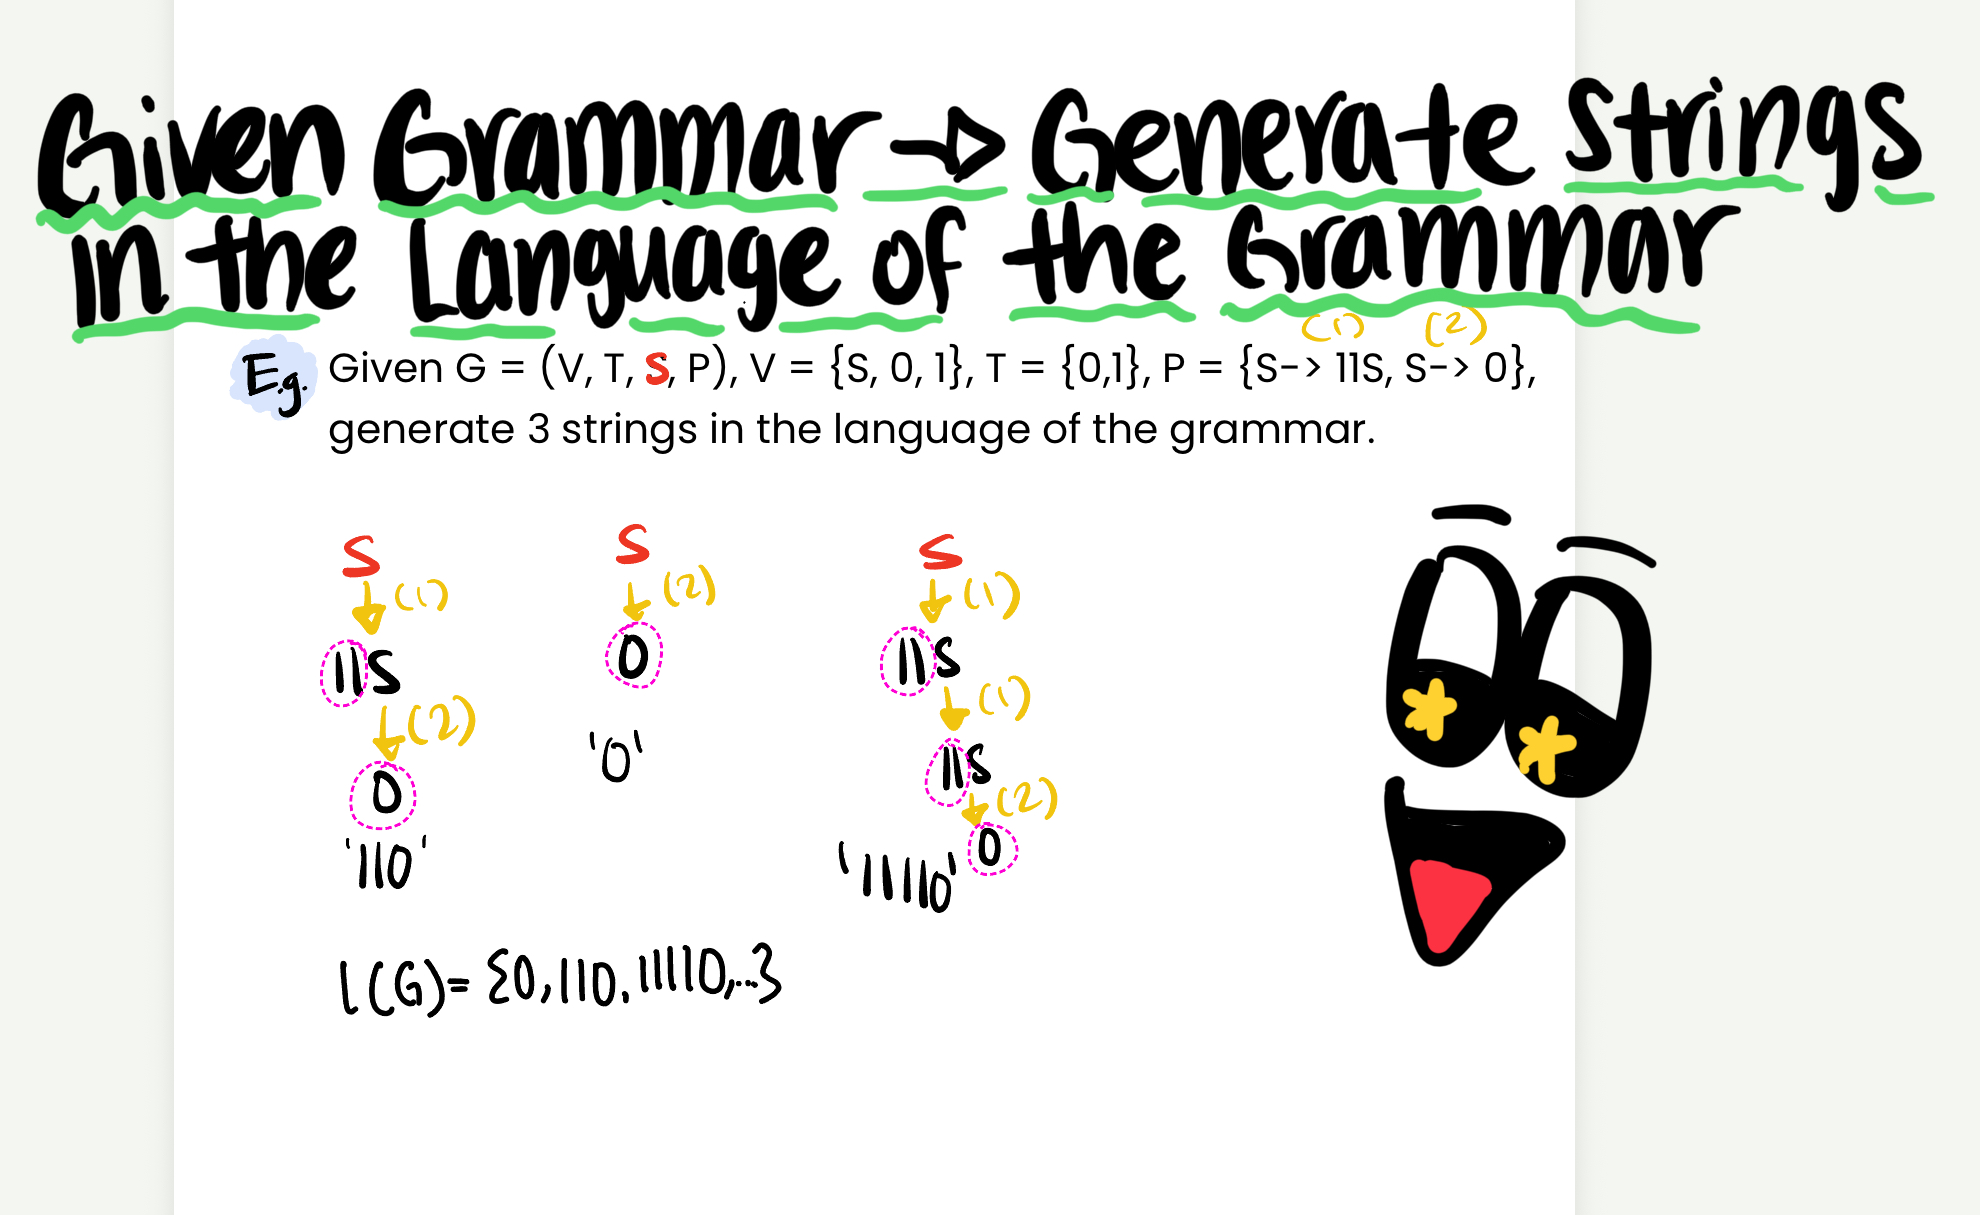 Given Grammar → Generate Strings
in the Language of the Grammar
(1) (2)
E.g. Given G = (V, T, S, P), V = {S, 0, 1}, T = {0,1}, P = {S-> 11S, S-> 0},
generate 3 strings in the language of the grammar.
S
↓ (1)
11S
↓ (2)
0
'110'
S
↓ (2)
0
'0'
S
↓ (1)
11S
↓ (1)
11S
↓ (2)
0
'11110'
L(G) = {0, 110, 11110, ...}